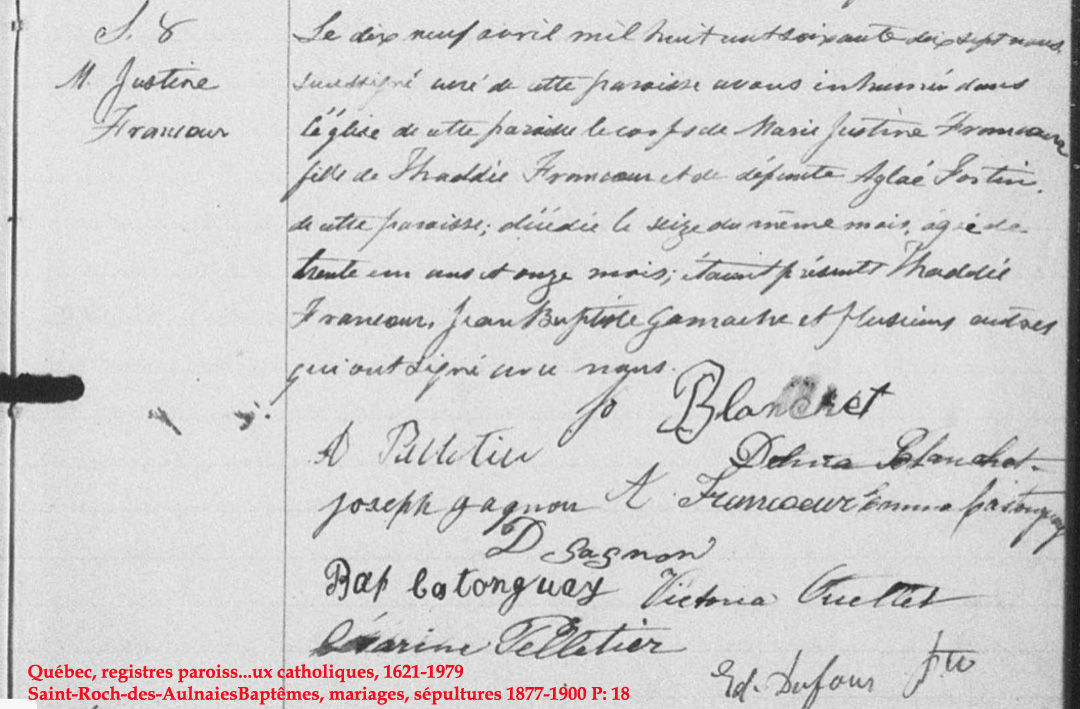 S. 8
M. Justine
Francoeur
Le dix neuf avril mil huit cent soixante dix sept nous,
soussigné curé de cette paroisse avons inhumé dans
l'église de cette paroisse le corps de Marie Justine Francoeur
fille de Thaddée Francoeur et de défunte Aglaé Fortin,
de cette paroisse; décédée le seize du même mois, agée de
trente un ans et onze mois; étaient présents Thaddée
Francoeur, Jean Baptiste Gamache et plusieurs autres
qui ont signé avec nous.
Blanchet
A Pelletier
Delvina Blanchet
Joseph gagnon A Francoeur Emma Castonguay
D gagnon
Bap Catonguay Victoria Ouellet
Césarine Pelletier
Ed. Dufour Ptre
Québec, registres paroiss...ux catholiques, 1621-1979
Saint-Roch-des-AulnaiesBaptêmes, mariages, sépultures 1877-1900 P: 18